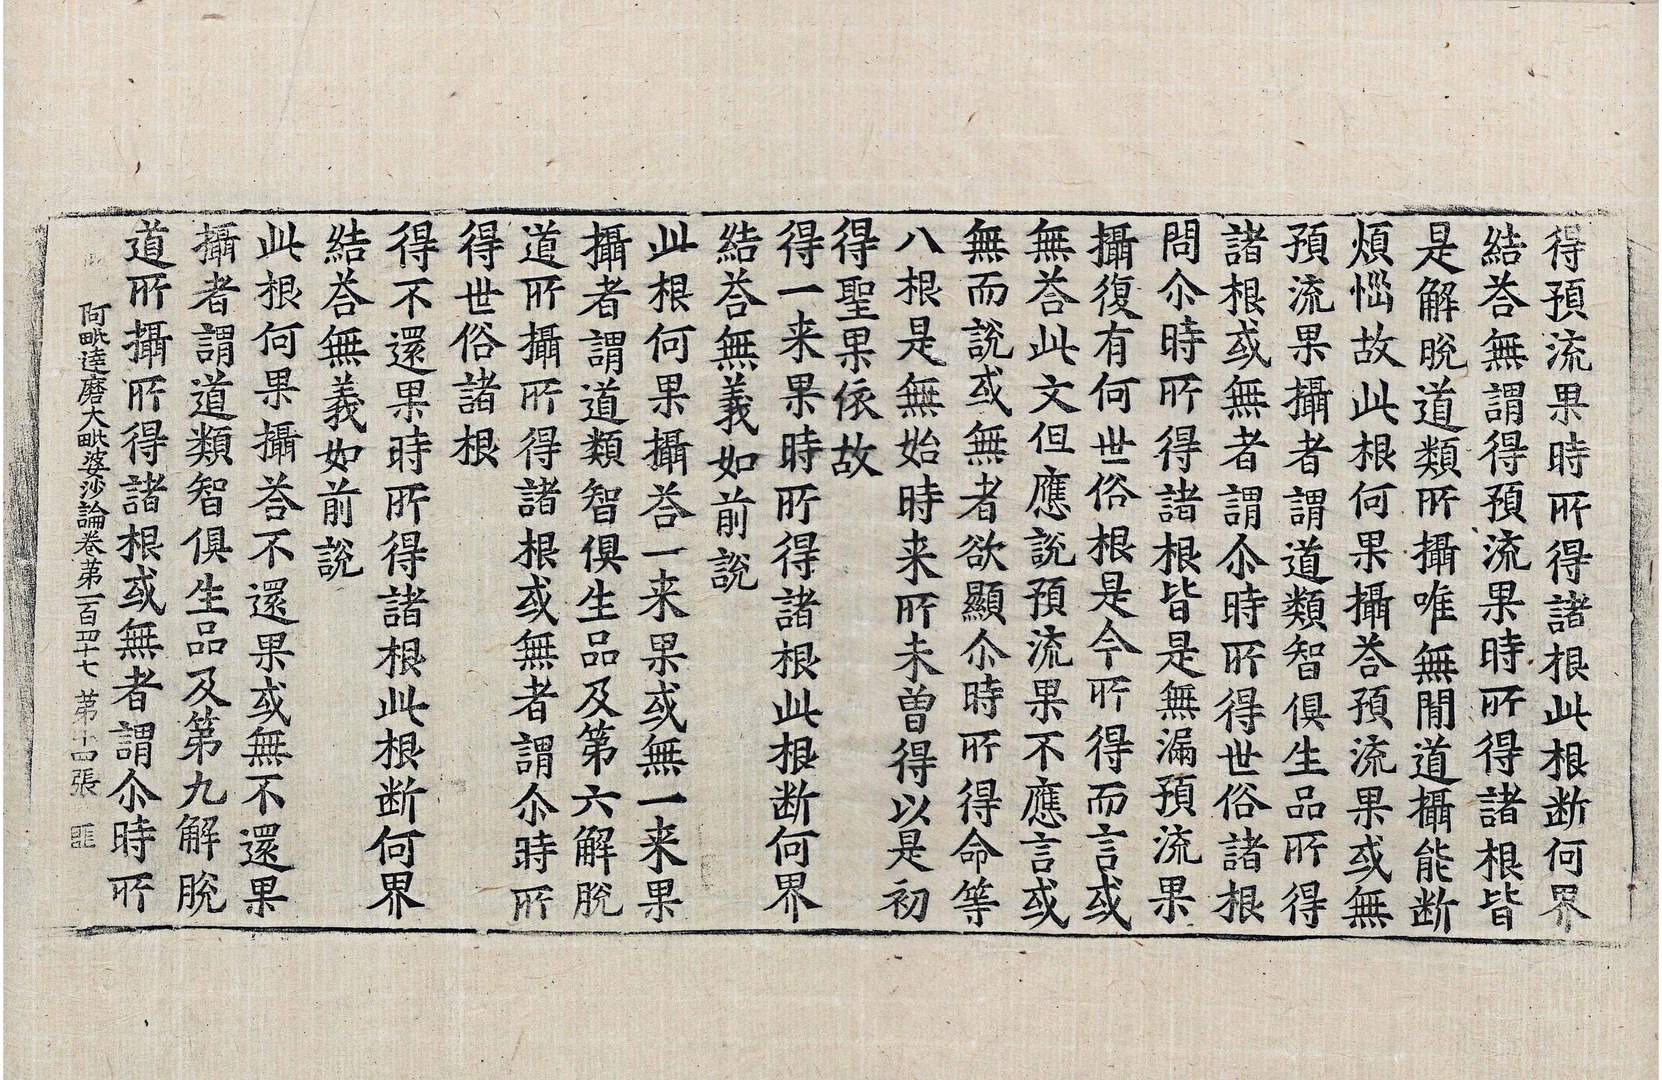 得預流果時所得諸根此根断何界
結荅無謂得預流果時所得諸根皆
是解脫道類所攝唯無間道攝能断
煩惱故此根何果攝荅預流果或無
預流果攝者謂道類智俱生品所得
諸根或無者謂尒時所得世俗諸根
問尒時所得諸根皆是無漏預流果
攝復有何世俗根是今所得而言或
無荅此文但應說預流果不應言或
無而說或無者欲顯尒時所得命等
八根是無始時来所未曾得以是初
得聖果依故
得一来果時所得諸根此根断何界
結荅無義如前說
此根何果攝荅一来果或無一来果
攝者謂道類智俱生品及第六解脫
道所攝所得諸根或無者謂尒時所
得世俗諸根
得不還果時所得諸根此根断何界
結荅無義如前說
此根何果攝荅不還果或無不還果
攝者謂道類智俱生品及第九解脫
道所攝所得諸根或無者謂尒時所
阿毗達磨大毗婆沙論卷苐一百四十七 苐十四張 匪